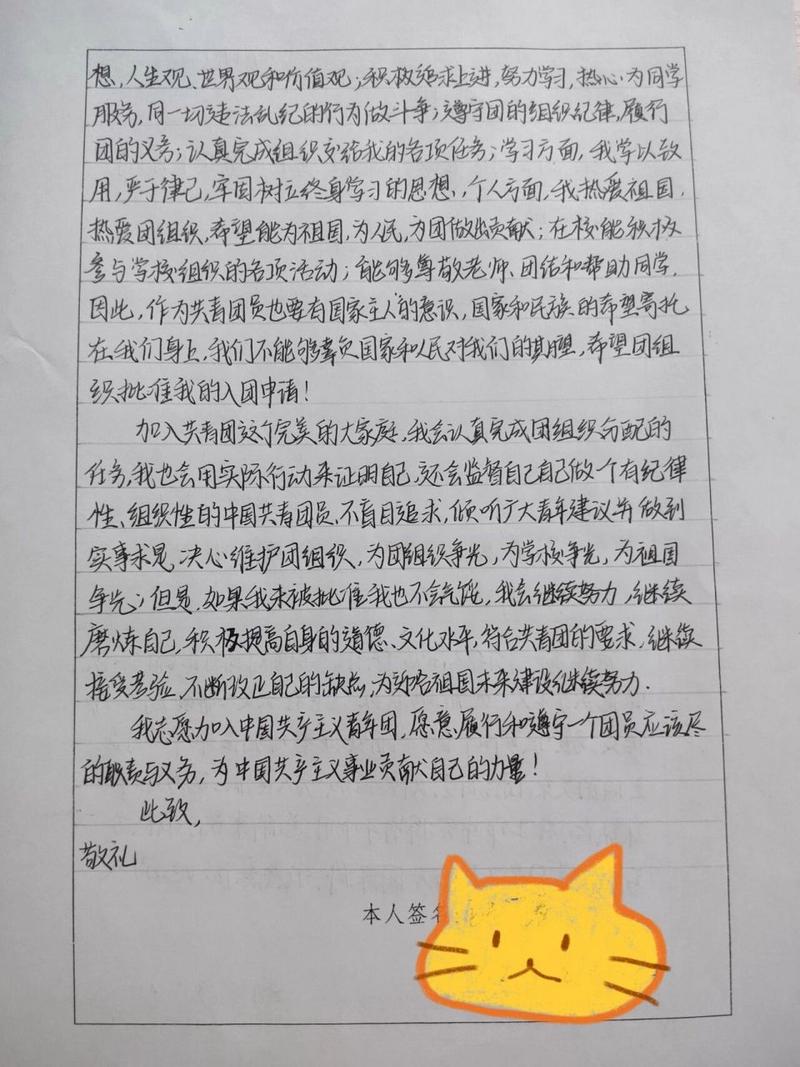 想,人生观、世界观和价值观;积极追求上进,努力学习,热心为同学
服务,同一切违法乱纪的行为做斗争;遵守团的组织纪律,履行
团的义务;认真完成组织交给我的各项任务;学习方面,我学以致
用,严于律己,牢固树立终身学习的思想,个人方面,我热爱祖国,
热爱团组织,希望能为祖国,为人民,为团做出贡献;在校能积极
参与学校组织的各项活动;能够尊敬老师、团结和帮助同学,
因此,作为共青团员也要有国家主人的意识,国家和民族的希望寄托
在我们身上,我们不能够辜负国家和人民对我们的期望,希望团组
织批准我的入团申请!
加入共青团这个完美的大家庭,我会认真完成团组织分配的
任务,我也会用实际行动来证明自己,还会监督自己自己做一个有纪律
性、组织性的中国共青团员、不盲目追求,倾听广大青年建议并做到
实事求是,决心维护团组织、为团组织争光,为学校争光,为祖国
争光;但是,如果我未被批准我也不会气馁,我会继续努力,继续
磨炼自己,积极提高自身的道德、文化水平,符合共青团的要求,继续
接受考验,不断改正自己的缺点,为建设祖国未来建设继续努力.
我志愿加入中国共产主义青年团,愿意履行和遵守一个团员应该尽
的职责与义务,为中国共产主义事业贡献自己的力量!
此致,
敬礼
本人签名